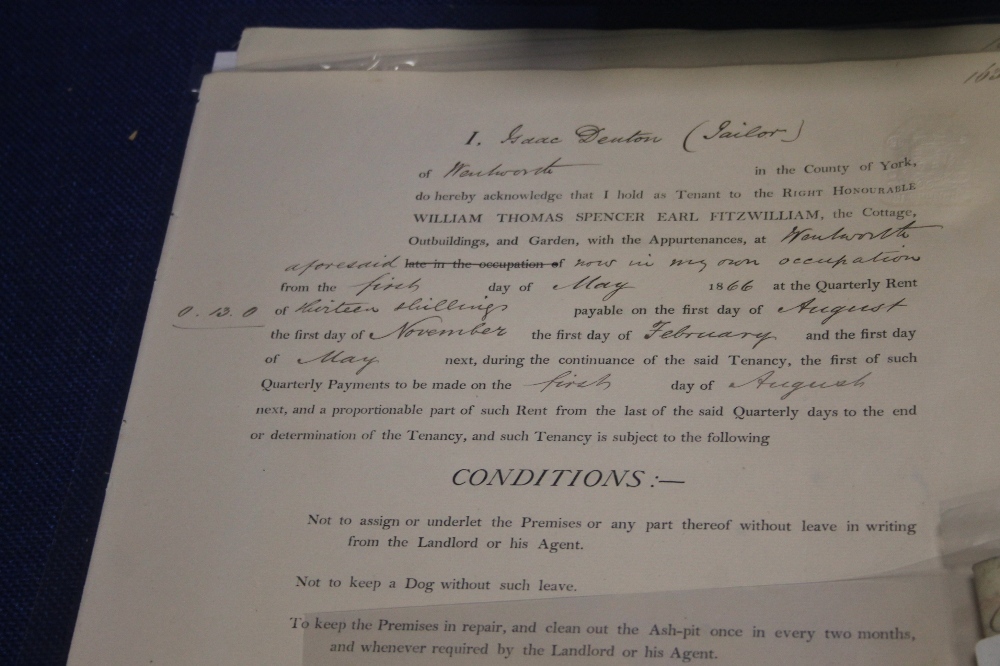 I, Isaac Denton (Tailor)
of Wentworth in the County of York,
do hereby acknowledge that I hold as Tenant to the RIGHT HONOURABLE
WILLIAM THOMAS SPENCER EARL FITZWILLIAM, the Cottage,
Outbuildings, and Garden, with the Appurtenances, at Wentworth
aforesaid late in the occupation of now in my own occupation
from the first day of May 1866 at the Quarterly Rent
0.13.0 of thirteen shillings payable on the first day of August
the first day of November the first day of February and the first day
of May next, during the continuance of the said Tenancy, the first of such
Quarterly Payments to be made on the first day of August
next, and a proportionable part of such Rent from the last of the said Quarterly days to the end
or determination of the Tenancy, and such Tenancy is subject to the following
CONDITIONS:—
Not to assign or underlet the Premises or any part thereof without leave in writing
from the Landlord or his Agent.
Not to keep a Dog without such leave.
To keep the Premises in repair, and clean out the Ash-pit once in every two months,
and whenever required by the Landlord or his Agent.